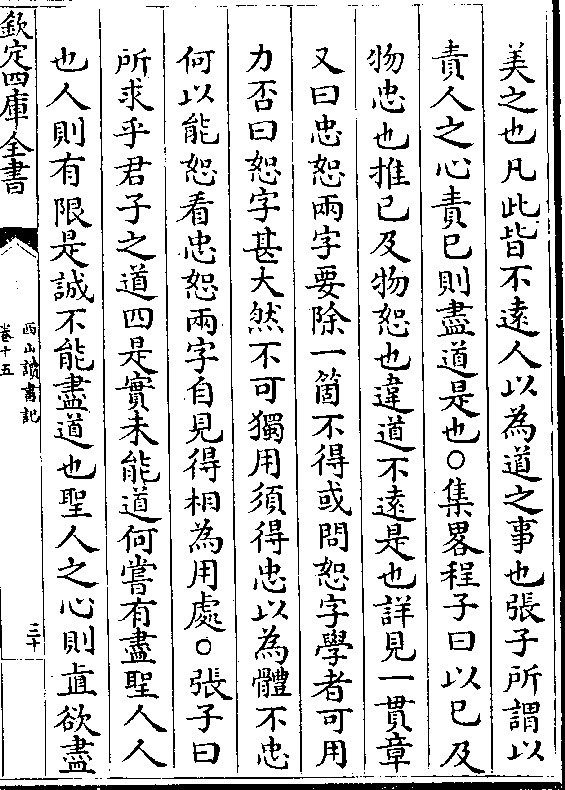 美之也凡此皆不遠人以為道之事也張子所謂以
責人之心責已則盡道是也○集畧程子曰以已及
物忠也推已及物恕也違道不遠是也詳見一貫章
又曰忠恕兩字要除一箇不得或問恕字學者可用
力否曰恕字甚大然不可獨用須得忠以為體不忠
何以能恕看忠恕兩字自見得相為用處○張子曰
所求乎君子之道四是實未能道何嘗有盡聖人人
也人則有限是誠不能盡道也聖人之心則直欲盡
欽定四庫全書
西山讀書記
卷十五
三十